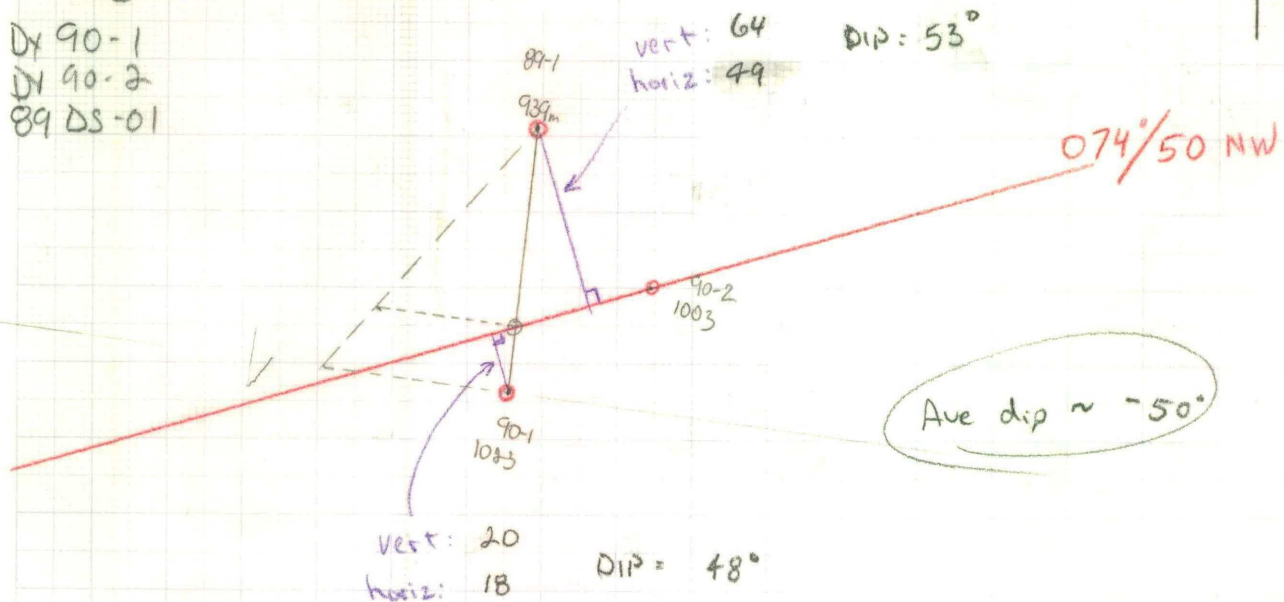 DY 90-1
DY 90-2
89 DS-01
vert: 64
horiz: 49
DIP: 53°
89-1
939m
074°/50 NW
90-2
1003
90-1
1023
Ave dip ~ -50°
vert: 20
horiz: 18
DIP = 48°